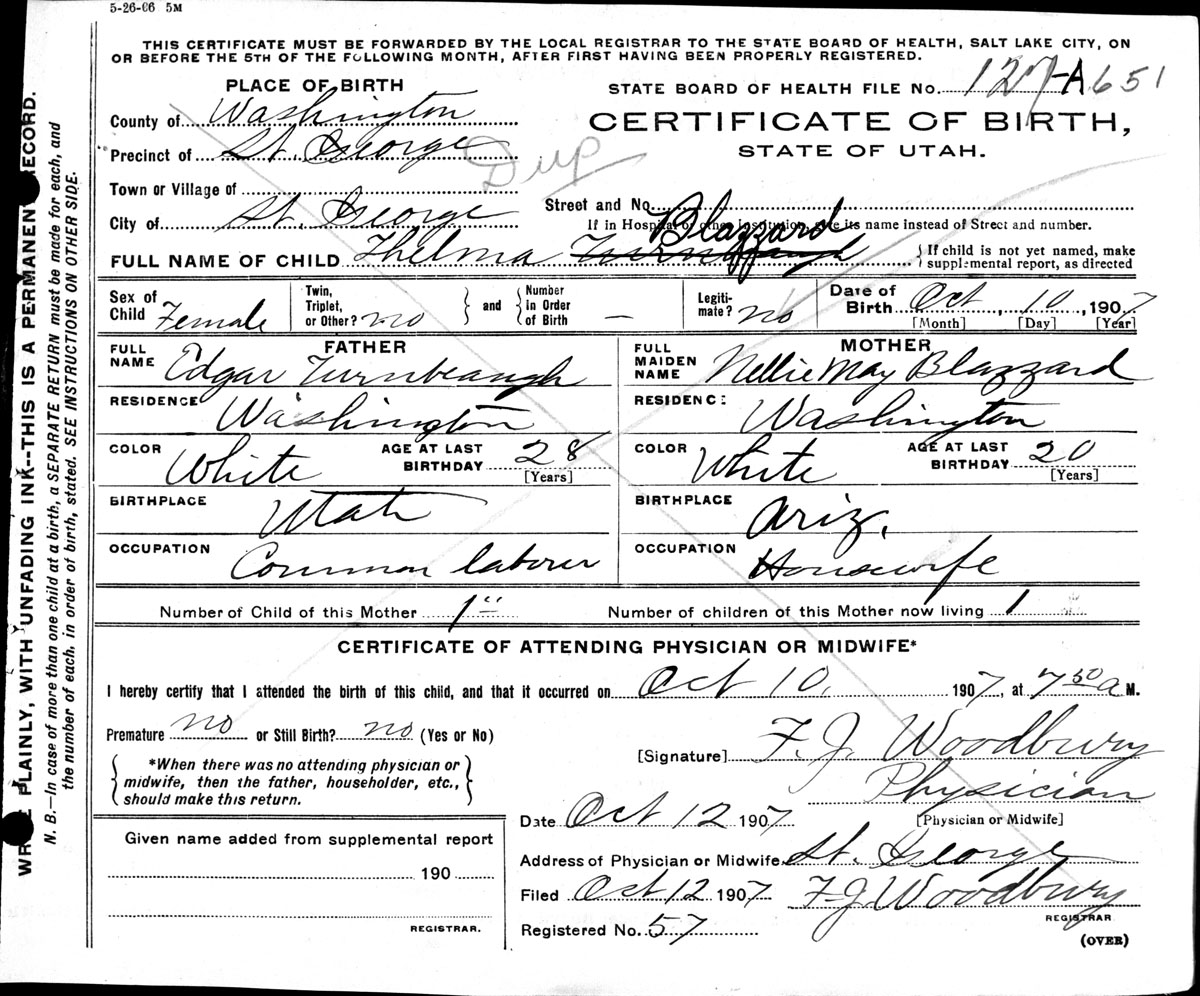 5-26-06 5M
THIS CERTIFICATE MUST BE FORWARDED BY THE LOCAL REGISTRAR TO THE STATE BOARD OF HEALTH, SALT LAKE CITY, ON
OR BEFORE THE 5TH OF THE FOLLOWING MONTH, AFTER FIRST HAVING BEEN PROPERLY REGISTERED.
PLACE OF BIRTH
County of Washington
Precinct of St. George
Town or Village of
City of St. George
Dup
STATE BOARD OF HEALTH FILE No. 127-A 651
CERTIFICATE OF BIRTH,
STATE OF UTAH.
Street and No.
If in Hospital or other Institution, give its name instead of Street and number.
Blazzard
FULL NAME OF CHILD Thelma Turnbeaugh
If child is not yet named, make
supplemental report, as directed
Sex of Child Female
Twin, Triplet, or Other? no
and Number in Order of Birth –
Legiti-mate? no
Date of Birth Oct 10, 1907
[Month] [Day] [Year]
FATHER
FULL NAME Edgar Turnbeaugh
RESIDENCE Washington
COLOR White AGE AT LAST BIRTHDAY 28 [Years]
BIRTHPLACE Utah
OCCUPATION Common laborer
MOTHER
FULL MAIDEN NAME Nellie May Blazzard
RESIDENCE Washington
COLOR White AGE AT LAST BIRTHDAY 20 [Years]
BIRTHPLACE Ariz.
OCCUPATION Housewife
Number of Child of this Mother 1" Number of children of this Mother now living 1
CERTIFICATE OF ATTENDING PHYSICIAN OR MIDWIFE*
I hereby certify that I attended the birth of this child, and that it occurred on Oct 10, 1907, at 7 50 a M.
Premature no or Still Birth? no (Yes or No)
*When there was no attending physician or
midwife, then the father, householder, etc.,
should make this return.
[Signature] F. J. Woodbury
Physician
[Physician or Midwife]
Date Oct 12 1907
Address of Physician or Midwife St. George
Filed Oct 12 1907 F. J. Woodbury
REGISTRAR
Registered No. 57
(OVER)
Given name added from supplemental report
190
REGISTRAR.
WRITE PLAINLY, WITH UNFADING INK--THIS IS A PERMANENT RECORD.
N. B.—In case of more than one child at a birth, a SEPARATE RETURN must be made for each, and
the number of each, in order of birth, stated. SEE INSTRUCTIONS ON OTHER SIDE.